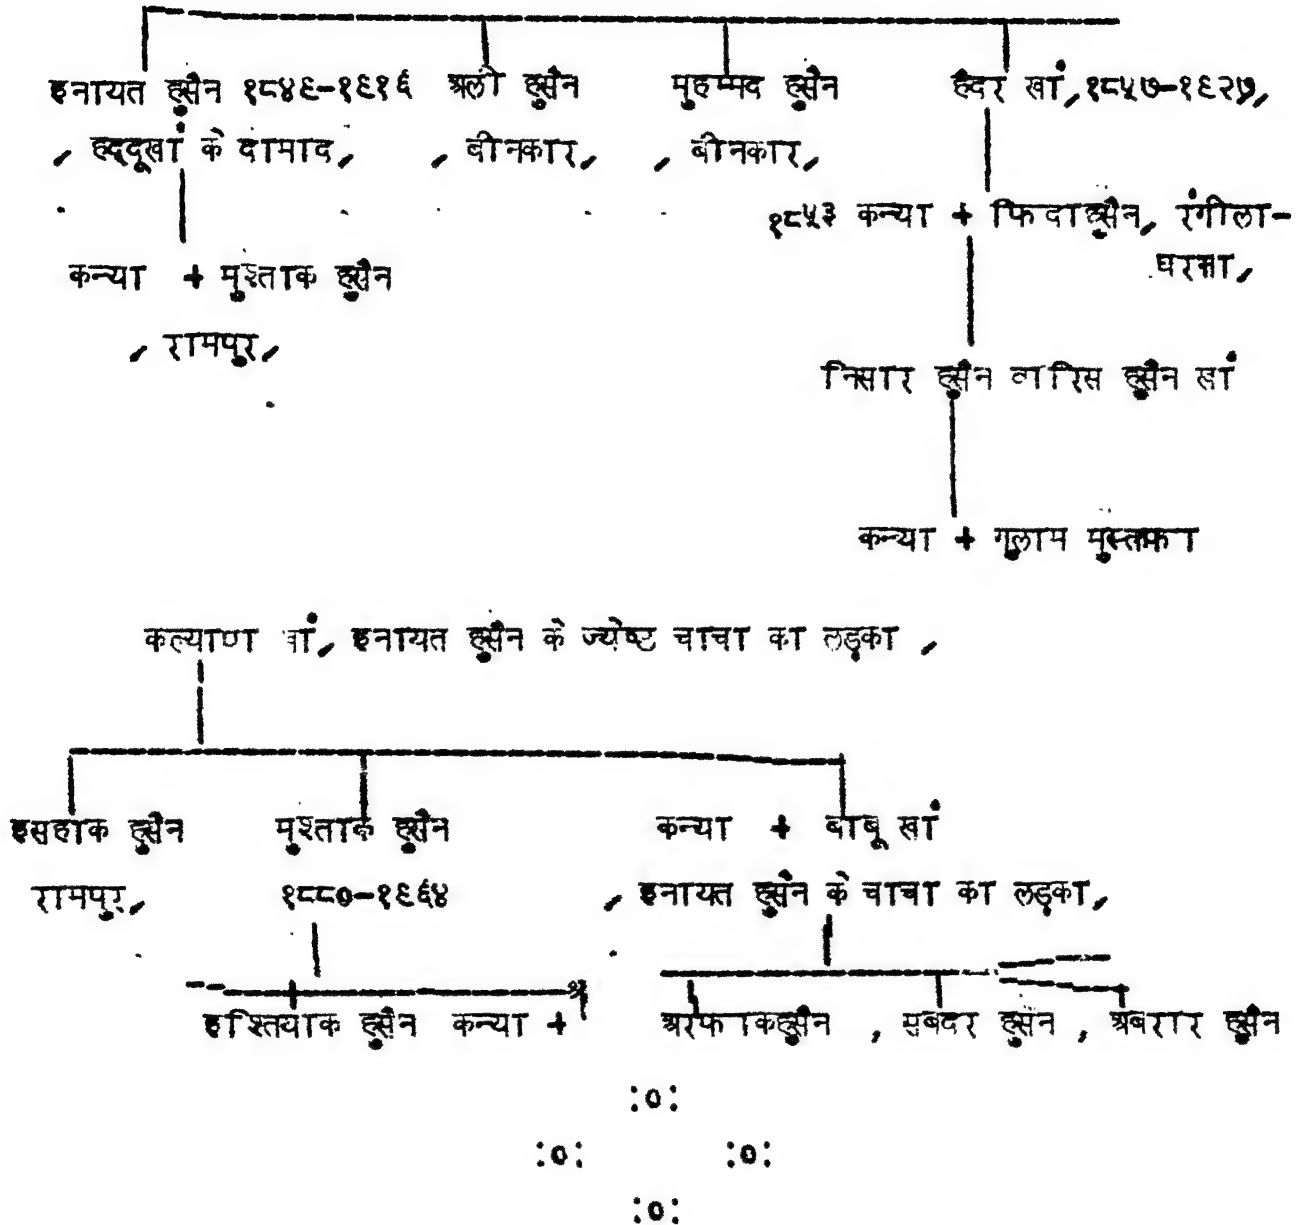 इनायत हुसैन १८४९-१९१६ अली हुसैन मुहम्मद हुसैन हैदर खां,१८५७-१९२७,
, हद्दूखां के दामाद, , बीनकार, , बीनकार,
१८५३ कन्या + फिदाहुसैन, रंगीला-
घरना,
कन्या + मुश्ताक हुसैन
, रामपुर,
निसार हुसैन वारिस हुसैन खां
कन्या + गुलाम मुस्तफा
कल्याण खां, इनायत हुसैन के ज्येष्ट चाचा का लड़का ,
इसहाक हुसैन मुश्ताक हुसैन कन्या + बाबू खां
रामपुर, १८८०-१९६४ , इनायत हुसैन के चाचा का लड़का,
इश्तियाक हुसैन कन्या + अश्फाकहुसैन , सबदर हुसैन , अबरार हुसैन
:०:
:०: :०:
:०: